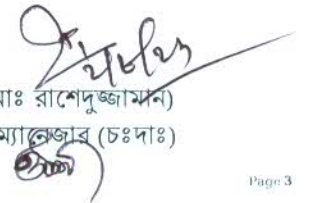 মোঃ রাশেদুজ্জামান)
ম্যানেজার (চঃদাঃ)
Page 3